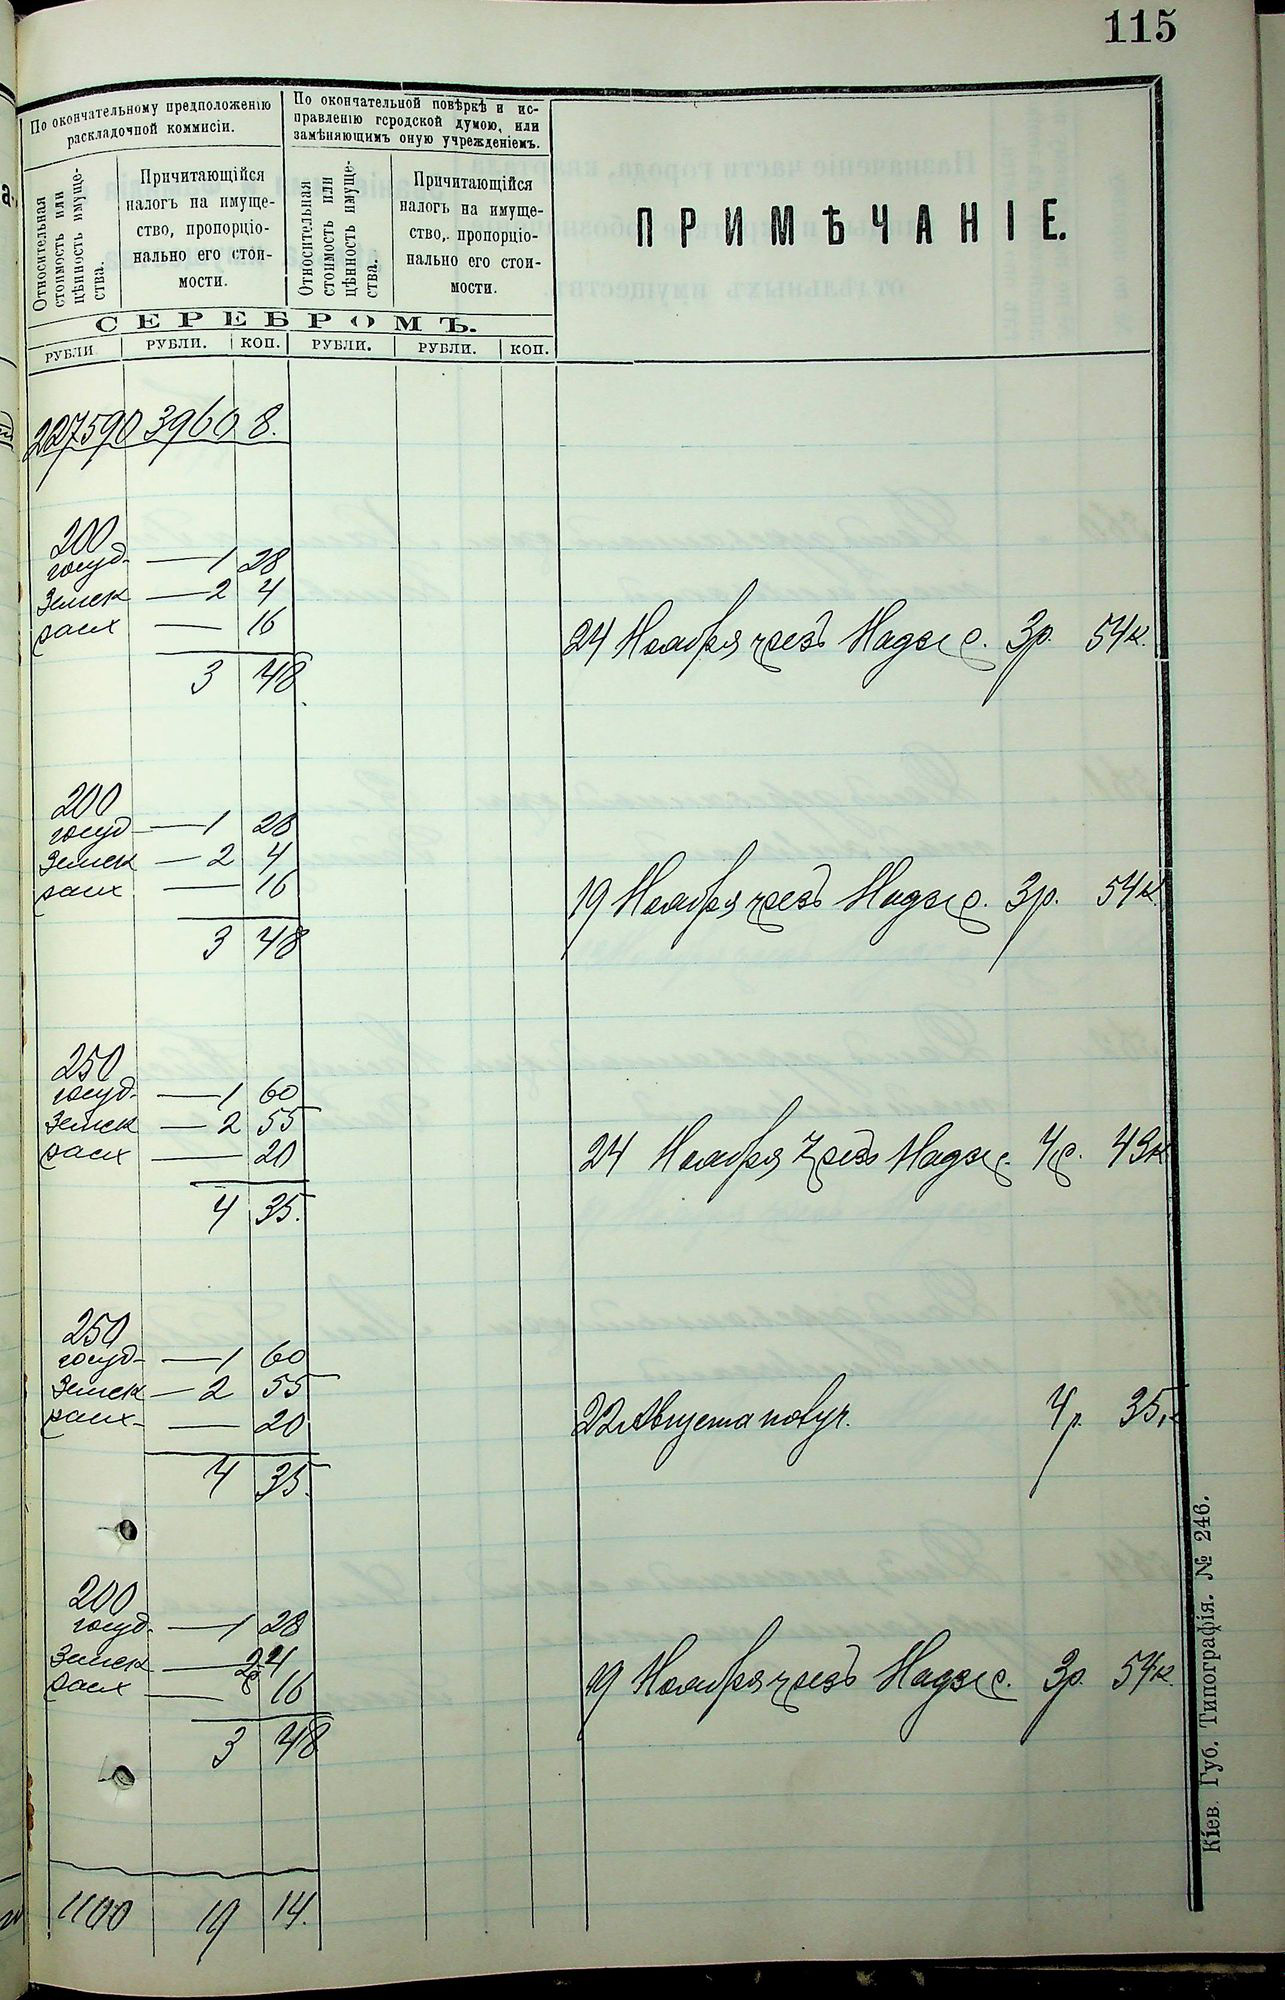 115
По окончательному предположенію
раскладочной коммисіи.
По окончательной повѣркѣ и ис-
правленію городской думою, или
замѣняющимъ оную учрежденіемъ.
Относительная
стоимость или
цѣнность имуще-
ства.
Причитающійся
налогъ на имуще-
ство, пропорціо-
нально его стои-
мости.
Относительная
стоимость или
цѣнность имуще-
ства.
Причитающійся
налогъ на имуще-
ство, пропорціо-
нально его стои-
мости.
ПРИМѢЧАНІЕ.
СЕРЕБРОМЪ.
РУБЛИ РУБЛИ. КОП. РУБЛИ. РУБЛИ. КОП.
227590 3960 8.
200
госуд. — 1 28
Земск — 2 4
расх — 16
24 Ноября чрезъ Надзир. 3р. 54к.
3 48
200
госуд — 1 28
Земск — 2 4
расх — 16
19 Ноября чрезъ Надзир. 3р. 54к.
3 48
250
госуд. — 1 60
Земск — 2 55
расх — 20
24 Ноября чрезъ Надзир. 4р. 43к
4 35.
250
госуд — 1 60
Земск — 2 55
расх — 20
22 Августа 4р. 35.к
4 35.
200
госуд. — 1 28
Земск — 2 4
расх — 16
19 Ноября чрезъ Надзир. 3р. 54к.
3 48
1100 19 14.
Кіев. Губ. Типографія. № 246.